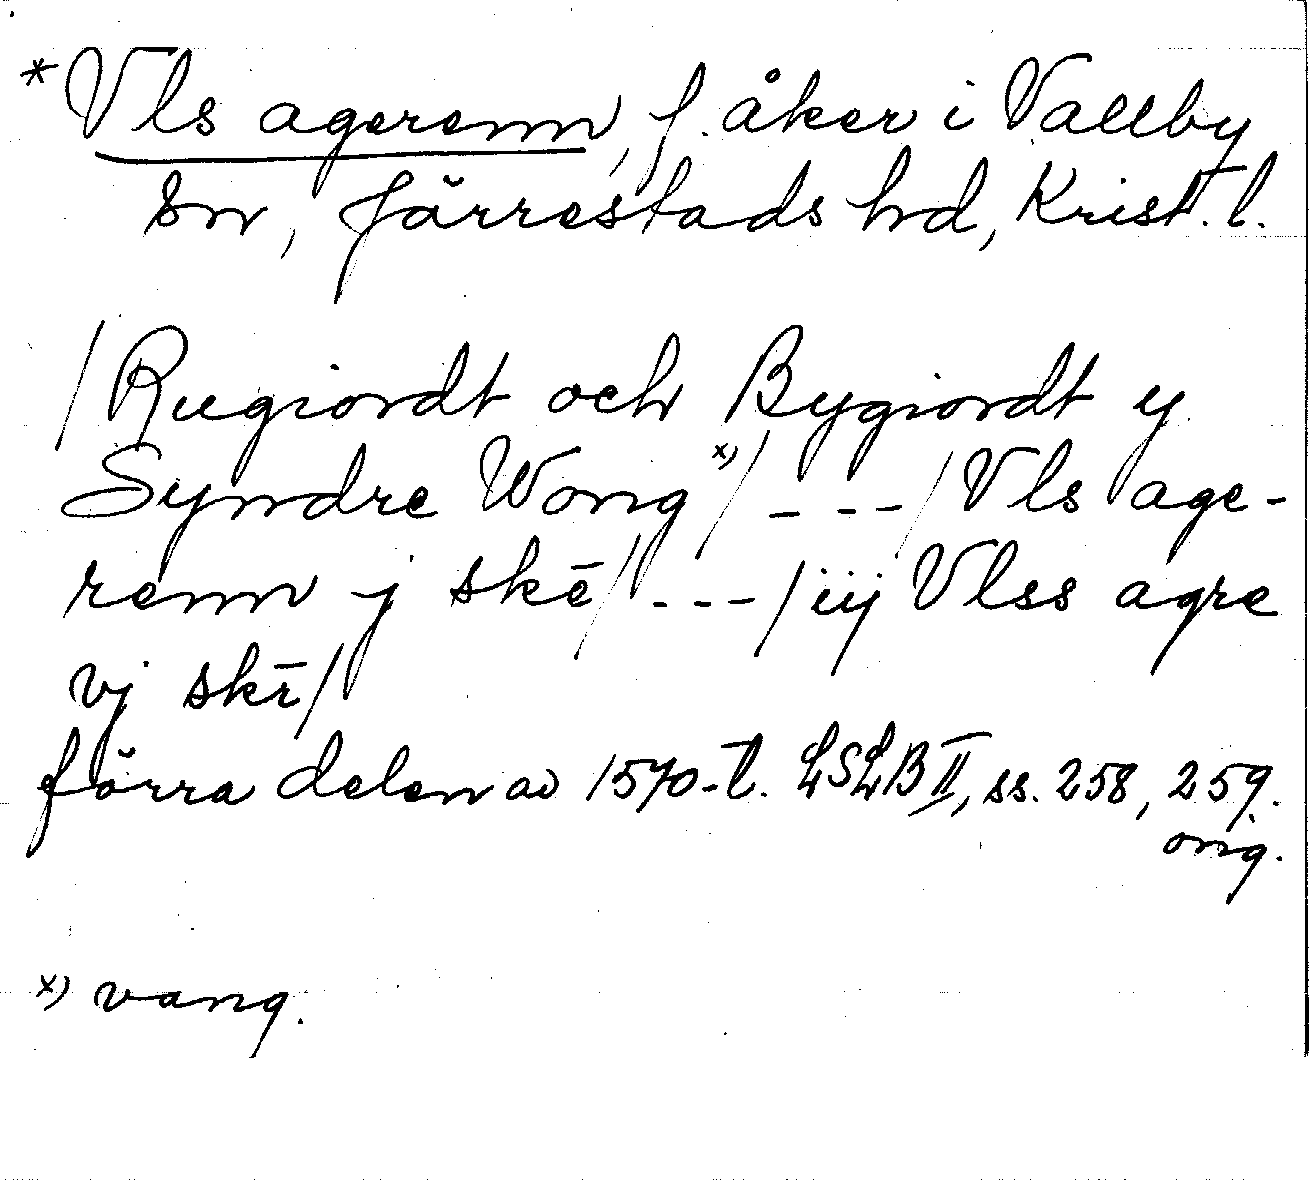 *Vls agerenn, f. åker i Vallby
sn, Järrestads hd, Krist. l.
/Rugiordt och Bygiordt y
Syndre Wong x)/ - - - /Vls age-
renn j skē/ - - - /iij Vlss agre
vj skē/
förra delen av 1570-t. LSLB II, ss. 258, 259.
orig.
x) vang.